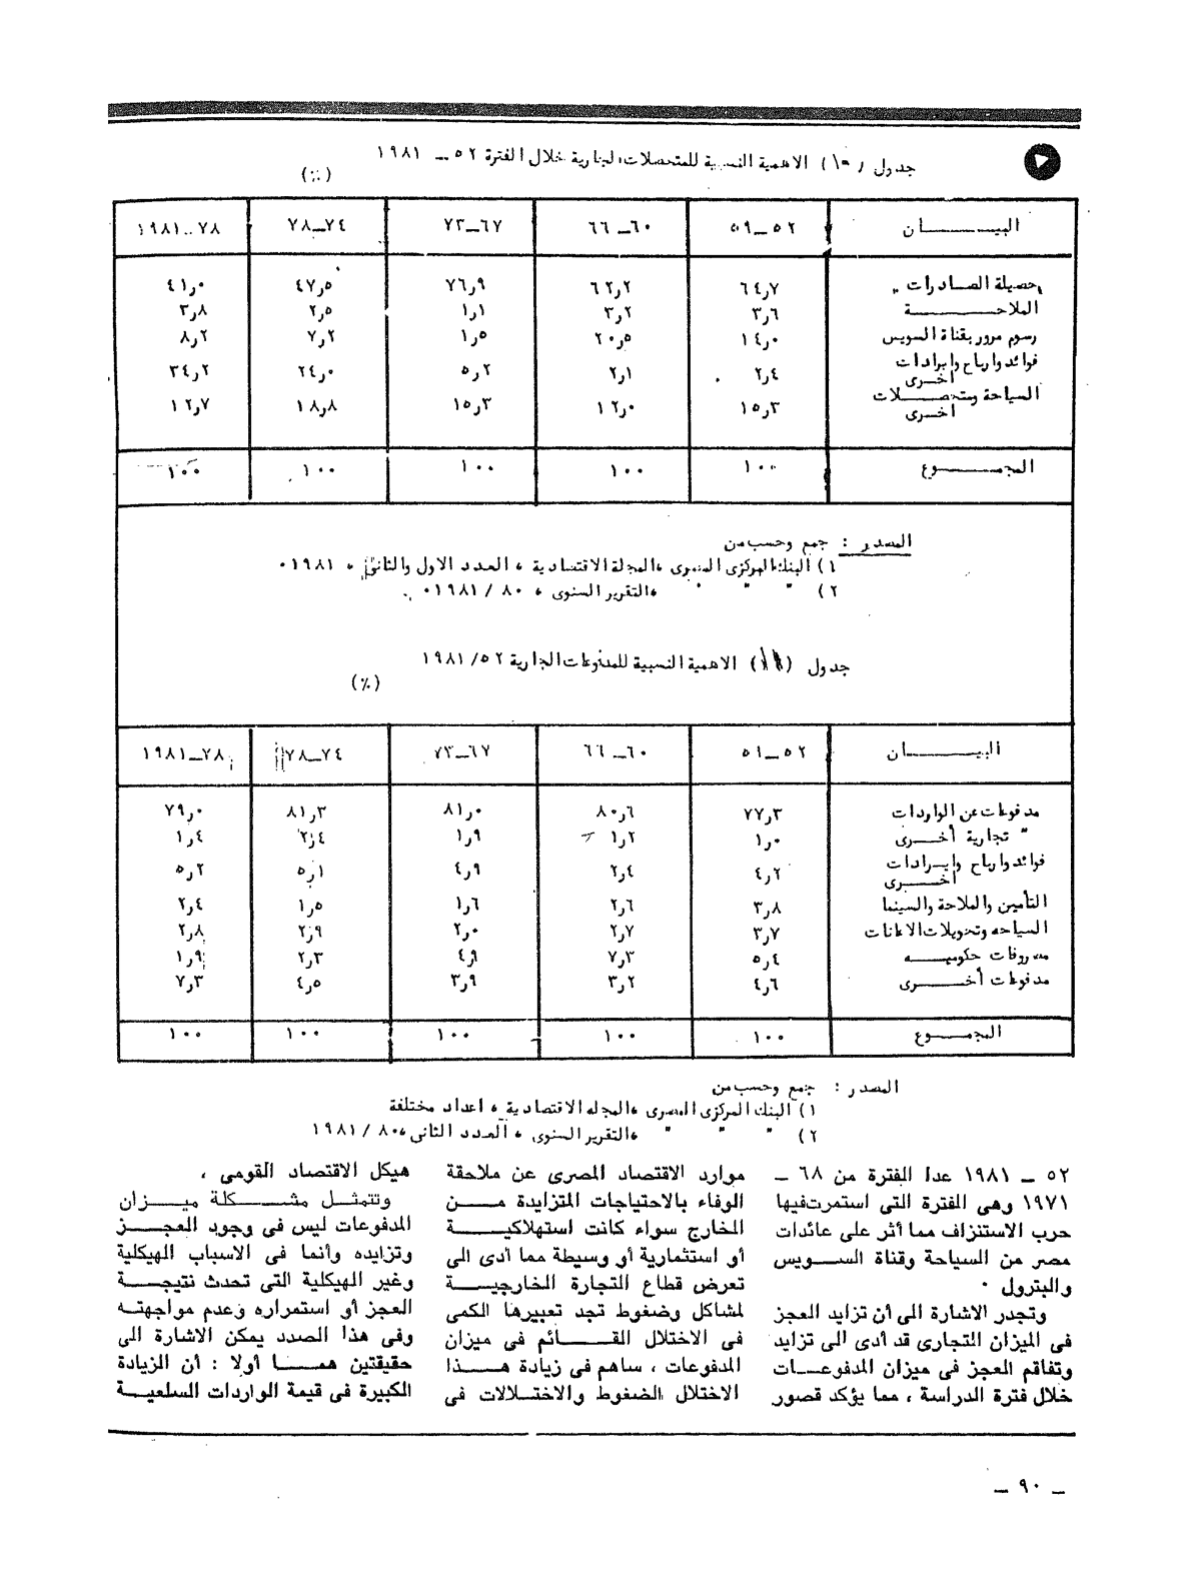 جدول (١٠) الاهمية النسبية للمتحصلات الجارية خلال الفترة ٥٢ ــ ١٩٨١
(٪)
البيـــــان ٥٢ــ٥٩ ٦٠ــ٦٦ ٦٧ــ٧٣ ٧٤ــ٧٨ ٧٨ـ١٩٨١
حصيلة الصادرات ٦٤٫٧ ٦٢٫٢ ٧٦٫٩ ٤٧٫٥ ٤١٫٠
الملاحـــــة ٣٫٦ ٣٫٢ ١٫١ ٢٫٥ ٣٫٨
رسوم مرور بقناة السويس ١٤٫٠ ٢٠٫٥ ١٫٥ ٧٫٢ ٨٫٢
فوائد وارباح وايرادات أخــرى ٢٫٤ ٢٫١ ٥٫٢ ٢٤٫٠ ٣٤٫٢
السياحة ومتحصـلات أخــرى ١٥٫٣ ١٢٫٠ ١٥٫٣ ١٨٫٨ ١٢٫٧
المجمـــــوع ١٠٠ ١٠٠ ١٠٠ ١٠٠ ١٠٠
المصدر : جمع وحسب من
١) البنك المركزى المصرى ، المجلة الاقتصادية ، العدد الاول والثانى ، ١٩٨١٠
٢) " " " ، التقرير السنوى ، ٨٠ / ١٩٨١٠
جدول (١١) الاهمية النسبية للمدفوعات الجارية ٥٢/ ١٩٨١
(٪)
البيـــــان ٥٢ــ٥٩ ٦٠ــ٦٦ ٦٧ــ٧٣ ٧٤ــ٧٨ ٧٨ــ١٩٨١
مدفوعات عن الواردات ٧٧٫٣ ٨٠٫٦ ٨١٫٠ ٨١٫٣ ٧٩٫٠
" تجارية أخــرى ١٫٠ ١٫٢ ١٫٩ ٢٫٤ ١٫٤
فوائد وارباح وايـرادات أخــرى ٤٫٢ ٢٫٤ ٤٫٩ ٥٫١ ٥٫٢
التأمين والملاحة والسينما ٣٫٨ ٢٫٦ ١٫٦ ١٫٥ ٢٫٤
السياحه وتحويلات الاعانات ٣٫٧ ٢٫٧ ٢٫٠ ٢٫٩ ٢٫٨
مصروفات حكوميــه ٥٫٤ ٧٫٣ ٤٫٩ ٢٫٣ ١٫٩
مدفوعات أخـــرى ٤٫٦ ٣٫٢ ٣٫٩ ٤٫٥ ٧٫٣
المجمـــــوع ١٠٠ ١٠٠ ١٠٠ ١٠٠ ١٠٠
المصدر : جمع وحسب من
١) البنك المركزى المصرى ، المجله الاقتصادية ، اعداد مختلفة
٢) " " " ، التقرير السنوى ، العدد الثانى ، ٨٠ / ١٩٨١
٥٢ ــ ١٩٨١ عدا الفترة من ٦٨ ــ
١٩٧١ وهى الفترة التى استمرت فيها
حرب الاستنزاف مما أثر على عائدات
مصر من السياحة وقناة الســويس
والبترول ٠
وتجدر الاشارة الى أن تزايد العجز
فى الميزان التجارى قد أدى الى تزايد
وتفاقم العجز فى ميزان المدفوعــات
خلال فترة الدراسة ، مما يؤكد قصور
موارد الاقتصاد المصرى عن ملاحقة
الوفاء بالاحتياجات المتزايدة مـــن
الخارج سواء كانت استهلاكيـــة
أو استثمارية أو وسيطة مما أدى الى
تعرض قطاع التجارة الخارجيـــة
لمشاكل وضغوط تجد تعبيرها الكمى
فى الاختلال القــــائم فى ميزان
المدفوعات ، ساهم فى زيادة هـــذا
الاختلال الضغوط والاختــلالات فى
هيكل الاقتصاد القومى ،
وتتمثـل مشـــكلة ميــزان
المدفوعات ليس فى وجود العجــز
وتزايده وأنما فى الاسباب الهيكلية
وغير الهيكلية التى تحدث نتيجـــة
العجز أو استمراره وعدم مواجهته
وفى هذا الصدد يمكن الاشارة الى
حقيقتين همـــا أولا : أن الزيادة
الكبيرة فى قيمة الواردات السلعيــة
ــ ٩٠ ــ